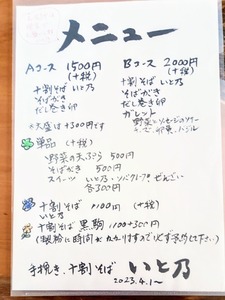 メニュー
Aコース 1500円
(+税)
十割そば いと乃
そばがき
だし巻き卵
*大盛は+300円です
Bコース 2000円
(+税)
十割そば いと乃
そばがき
だし巻き卵
ガレット
野菜とソーセージのソテー
チーズ・卵
単品 (+税)
野菜の天ぷら 500円
そばがき 500円
スイーツ いと乃・ ぜんざい
各300円
十割そば 1100円 (+税)
いと乃
十割そば 黒駒 1100+300円
手挽き・十割そば いと乃
2023.4.1〜